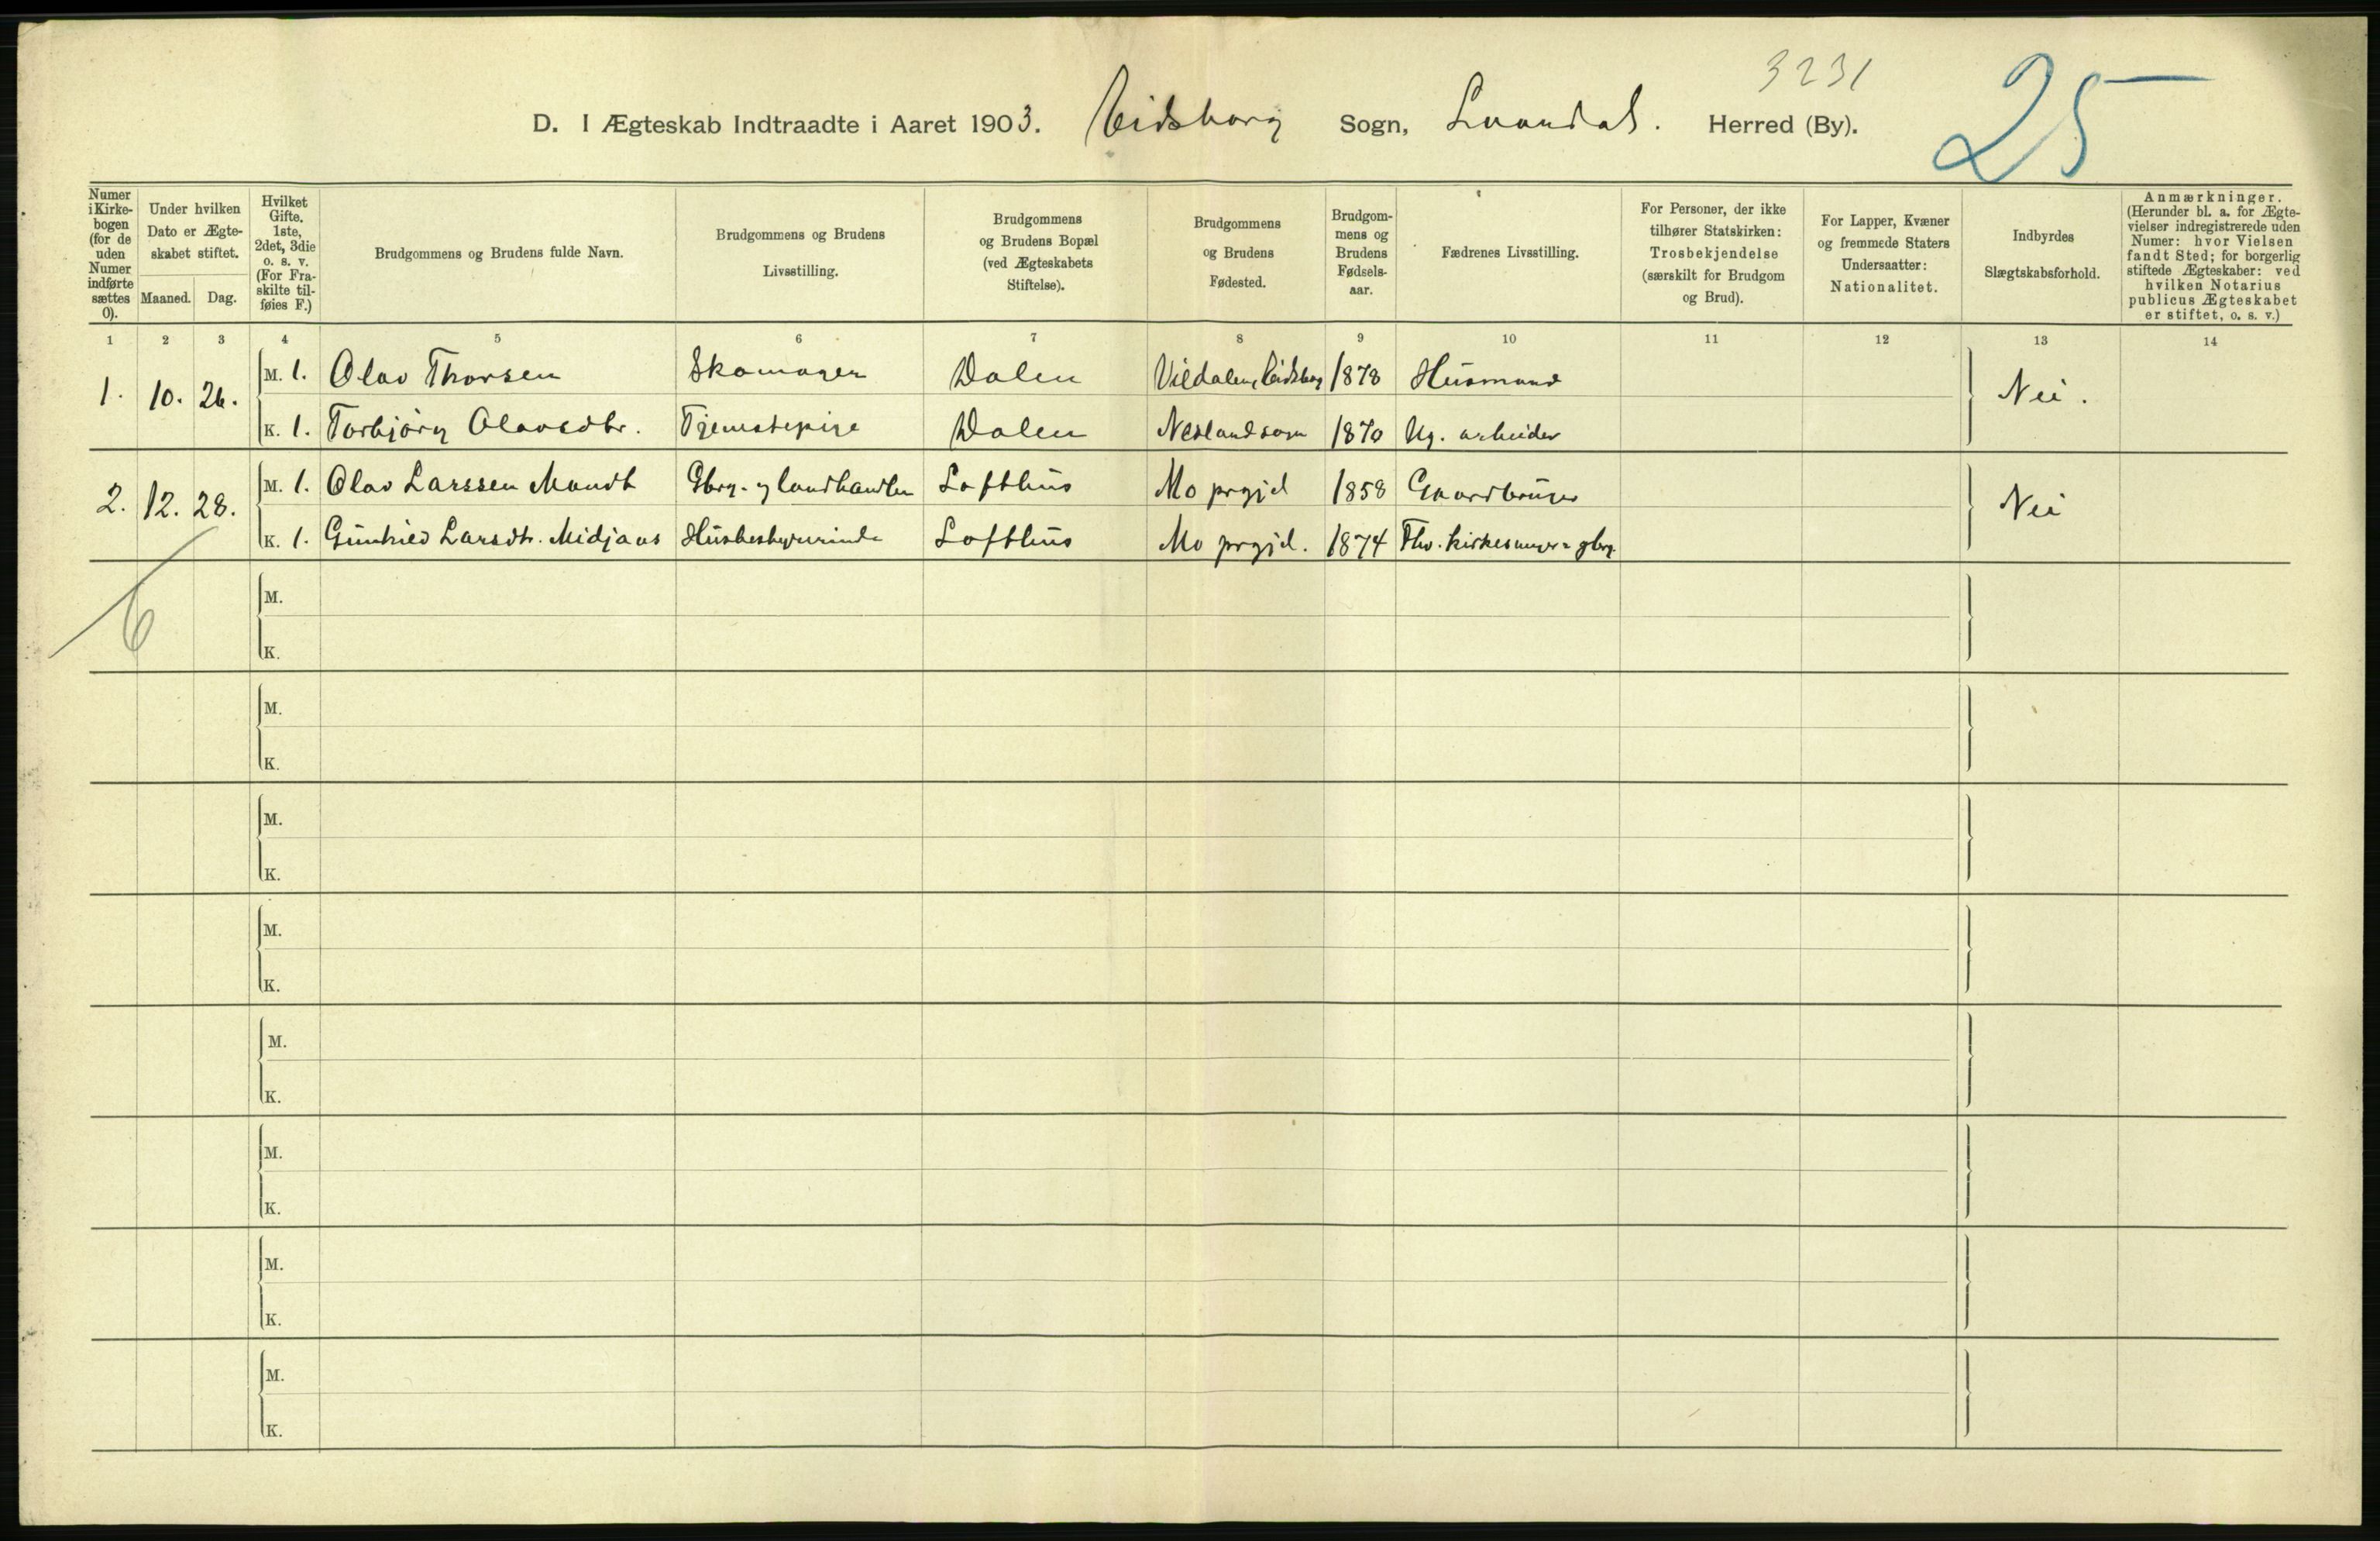 3231
25
D. I Ægteskab Indtraadte i Aaret 1903. Eidsborg Sogn, Laurdal. Herred (By).
Numer i Kirkebogen (for de uden Numer indførte sættes 0).
Under hvilken Dato er Ægteskabet stiftet.
Maaned. Dag.
Hvilket Gifte. 1ste, 2det, 3die o. s. v. (For Fraskilte tilføies F.)
Brudgommens og Brudens fulde Navn.
Brudgommens og Brudens Livsstilling.
Brudgommens og Brudens Bopæl (ved Ægteskabets Stiftelse).
Brudgommens og Brudens Fødested.
Brudgommens og Brudens Fødselsaar.
Fædrenes Livsstilling.
For Personer, der ikke tilhører Statskirken: Trosbekjendelse (særskilt for Brudgom og Brud).
For Lapper, Kvæner og fremmede Staters Undersaatter: Nationalitet.
Indbyrdes Slægtskabsforhold.
Anmærkninger. (Herunder bl. a. for Ægtevielser indregistrerede uden Numer: hvor Vielsen fandt Sted; for borgerlig stiftede Ægteskaber: ved hvilken Notarius publicus Ægteskabet er stiftet, o. s. v.)
1 2 3 4 5 6 7 8 9 10 11 12 13 14
1. 10. 26. M. 1. Olav Thorsen Skomager Dalen Vildalen, Eidsborg 1878 Husmand Nei.
K. 1. Torbjörg Olavsdtr. Tjenestepige Dalen Nesland sogn 1870 Ug. arbeider
2. 12. 28. M. 1. Olav Larssen Mandt Gbrg. og landhandler Lofthus Mo prgjd 1858 Gaardbruger Nei
K. 1. Gunhild Larsdtr. Midjaas Husbestyrerinde Lofthus Mo prgjd. 1874 Fhv. kirkesanger gbrg.
6
M.
K.
M.
K.
M.
K.
M.
K.
M.
K.
M.
K.
M.
K.
M.
K.